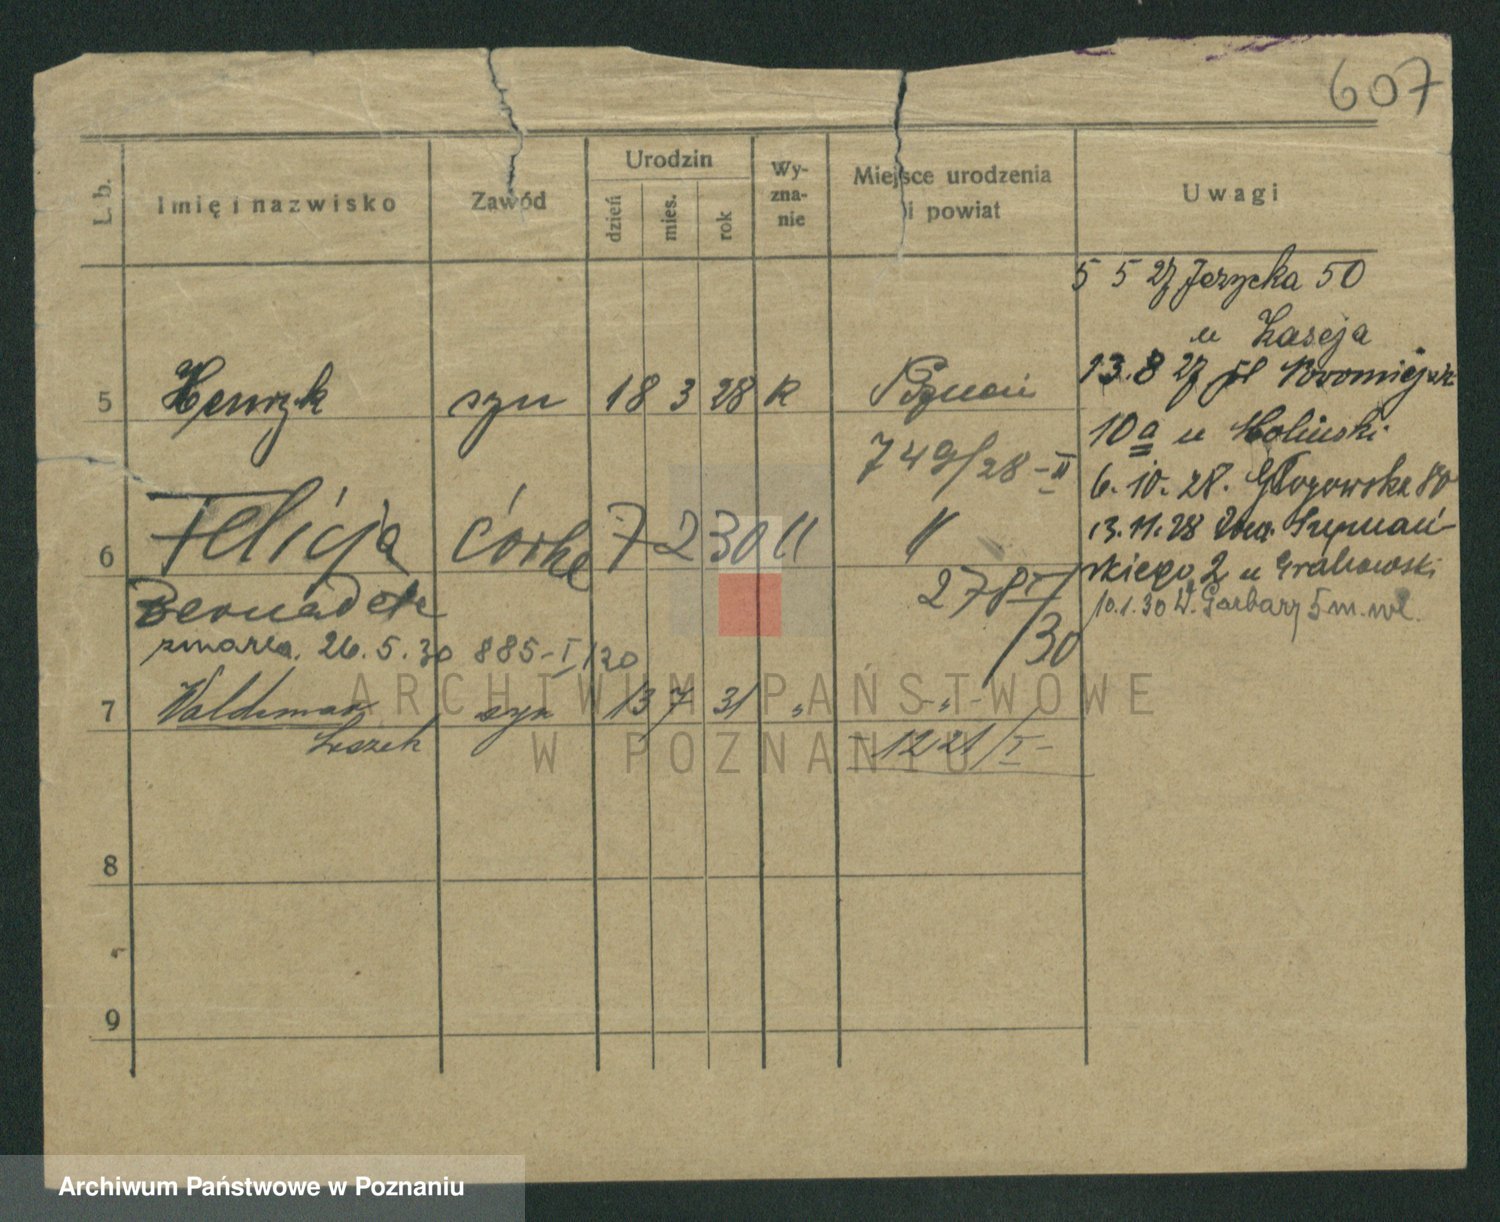 607
L. b.
Imię i nazwisko
Zawód
Urodzin
dzień
mies.
rok
Wy-
zna-
nie
Miejsce urodzenia
i powiat
Uwagi
5 5 27 Jerzycka 50
u
13.8 27 pl
10a u Moliński
6.10.28. Głogowska 80
13.11.28
skiego 2 u Grabowski
10.1.30 W. Garbary 5 m. wł.
5 Henryk syn 18 3 28 k Poznań
749/28-II
6 Felicja córka 7 2 30 " "
Bernadeta
278 I/
/30
zmarła. 26.5.30 885-I/30
7 Waldemar syn 13 7 31 " -"-
Leszek
-1221/I-
8
9
ARCHIWUM PAŃSTWOWE
W POZNANIU
Archiwum Państwowe w Poznaniu